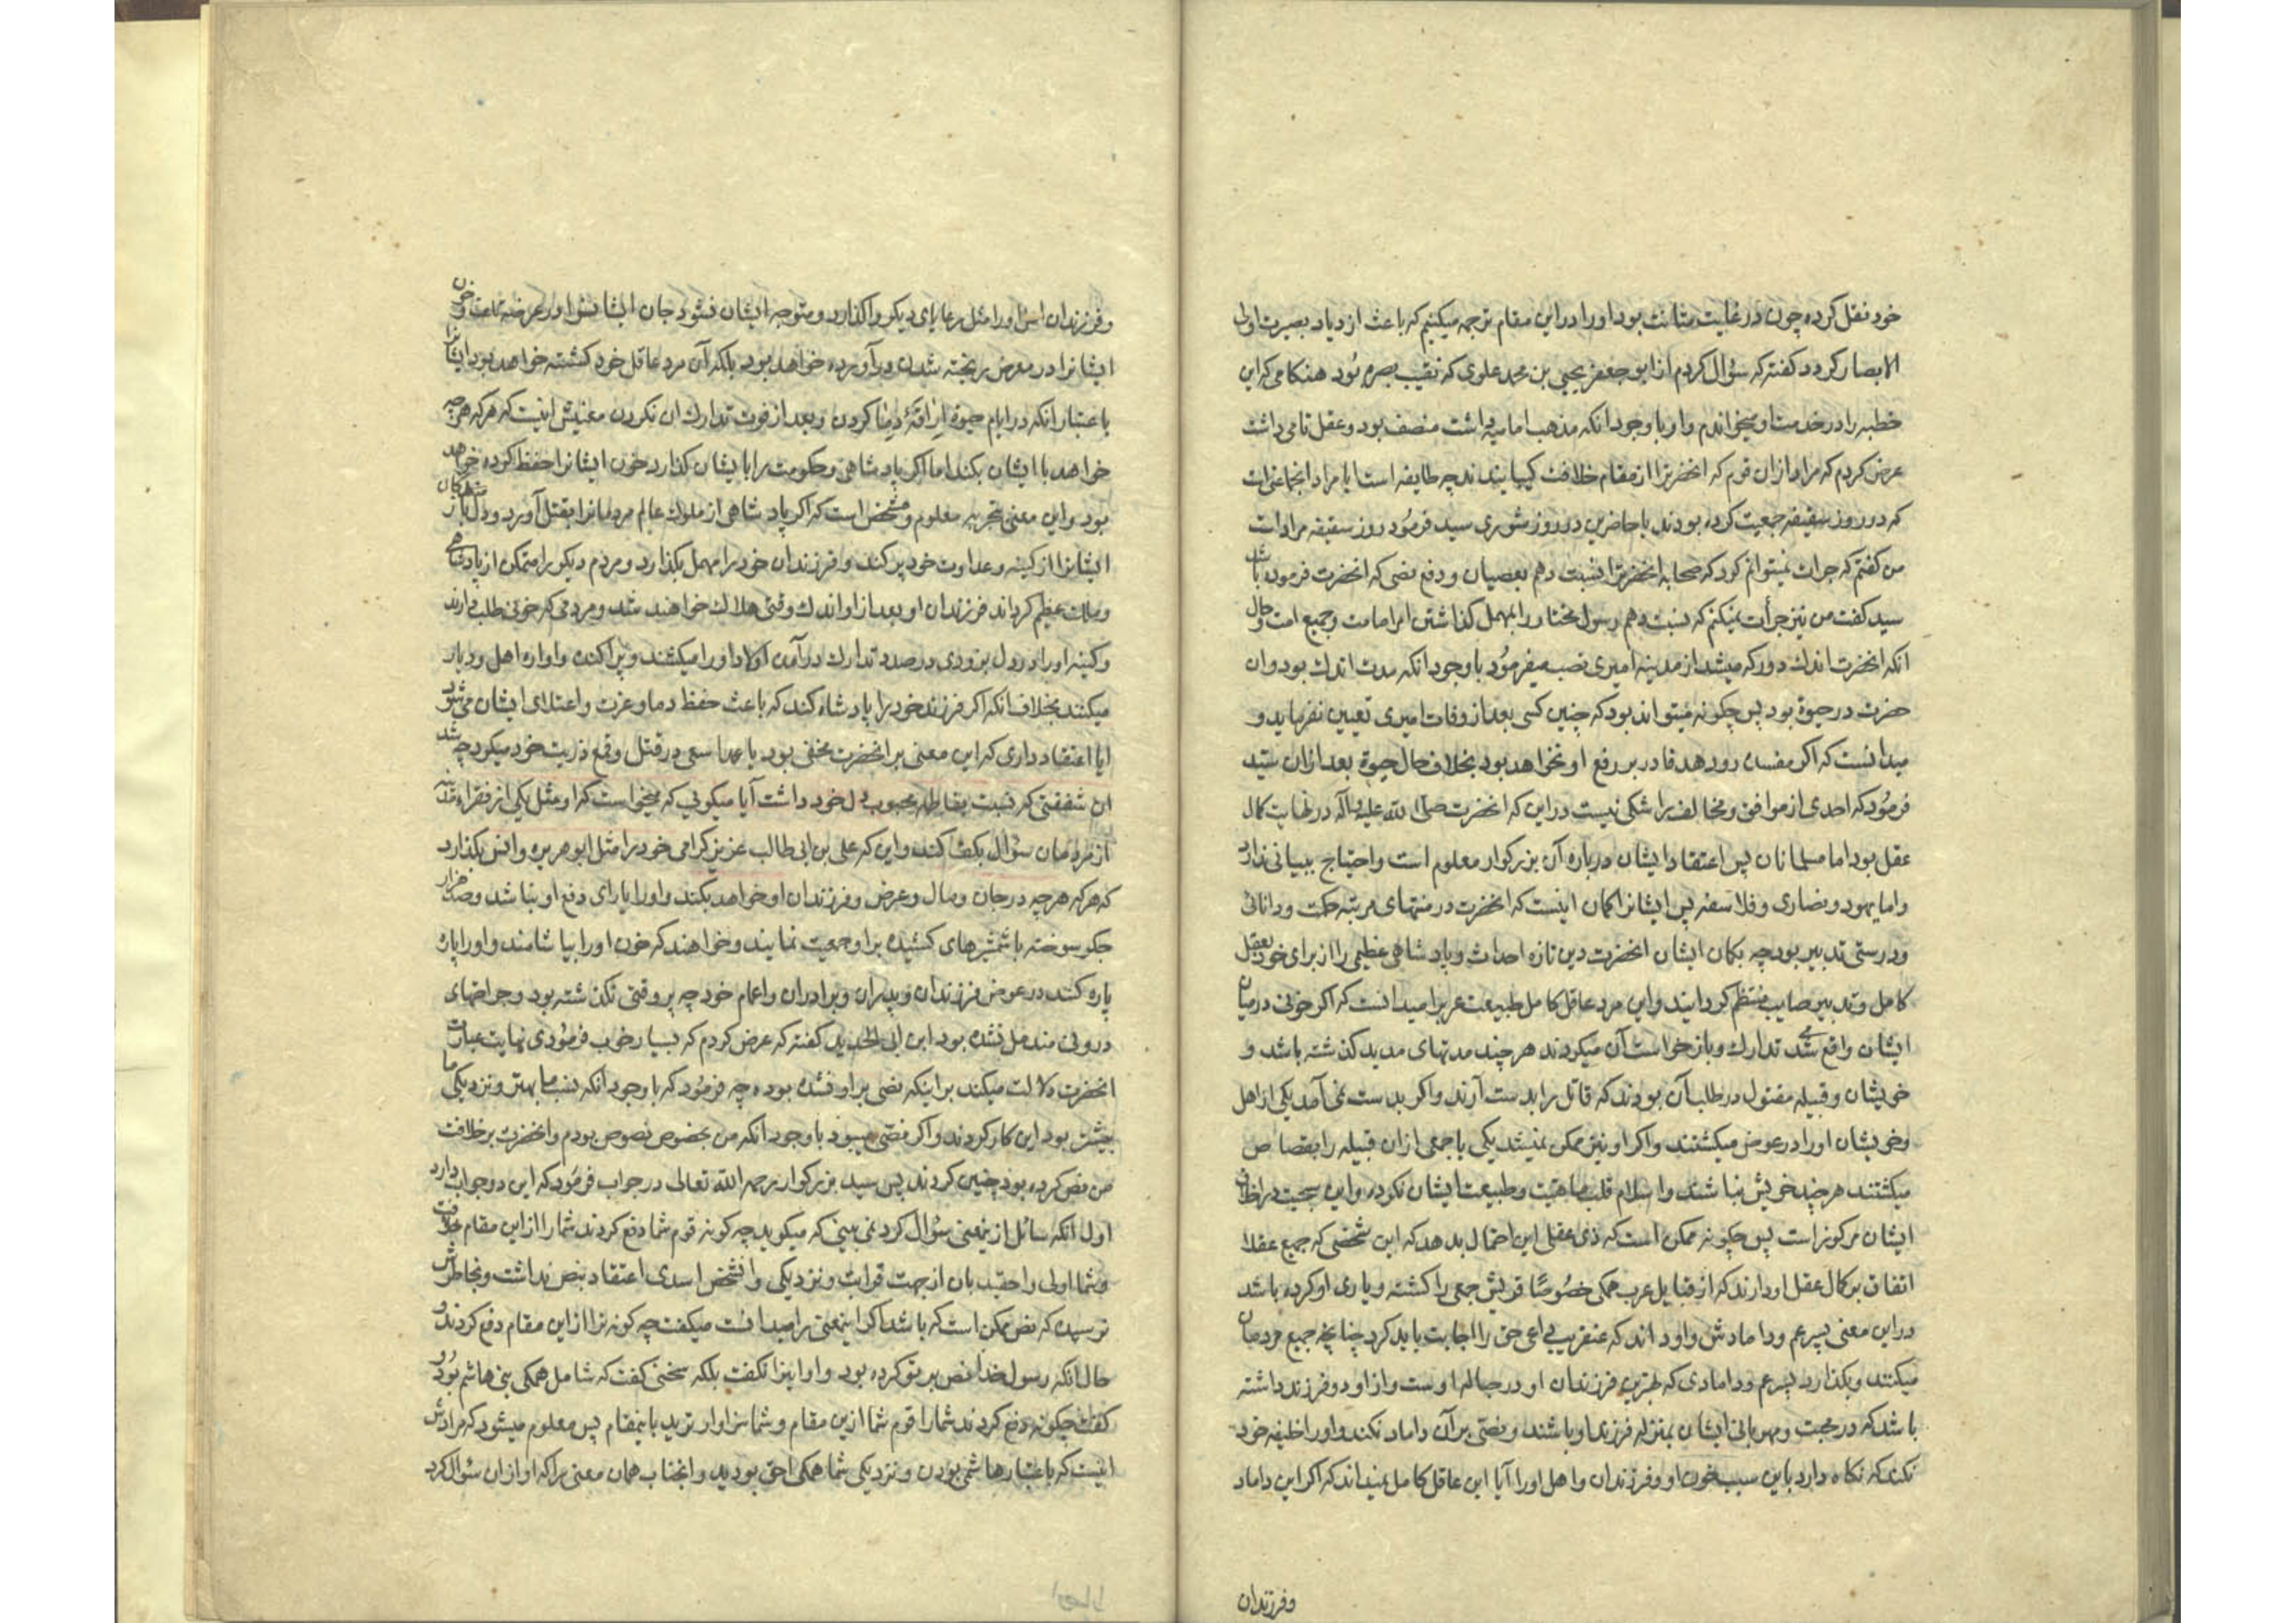 خود نقل کرده چون در غایت متانت بود او را در این مقام ترجمه میکنیم که باعث ازدیاد بصیرت اولی
الابصار کردد کفته که سؤال کردم از ابو جعفر یحیی بن محمد علوی که نقیب بصره بود هنکامی که این
خطبه را در خدمت او میخواندم و او با وجود انکه مذهب امامیه داشت منصف بود و عقل تامی داشت
عرض کردم که مراد از ان قوم که انحضرترا از مقام خلافت کیسانیدند چه طایفه است ایا مراد انجماعت است
که در روز سقیفه جمعیت کرده بودند یا حاضرین در روز شوری سید فرمود روز سقیفه مراد است
من کفتم که جرات نمیتوانم کرد که صحابه انحضرترا نسبت دهم بعصیان و دفع نصی که انحضرت فرموده باشد
سید کفت من نیز جرأت نمیکنم که نسبت دهم رسول مختار را بمهمل کذاشتن امر امامت و جمیع امت و حال
انکه انحضرت اندک دور که میشد از مدینه امیری نصب میفرمود با وجود انکه مدت اندک بود و ان
حضرت در حیوة بود پس چکونه میتواند بود که چنین کسی بعد از وفات امیری تعیین نفرماید و
میدانست که اکر مفسده رو دهد قادر بر رفع او نخواهد بود بخلاف حال حیوة بعد از ان سید
فرمود که احدی از موافق و مخالف را شکی نیست در این که انحضرت صلی الله علیه و آله در نهایت کمال
عقل بود اما مسلمانان پس اعتقاد ایشان درباره آن بزرکوار معلوم است و احتیاج ببیانی ندارد
و اما یهود و نصاری و فلاسفه پس ایشانرا کمان اینست که انحضرت در منتهای مرتبه حکمت و دانائی
و درستی تدبیر بود چه بکمان ایشان انحضرت دین تازه احداث و پادشاهی عظیمی را از برای خود بعقل
کامل و تدبیر صایب منتظم کردانید و این مرد عاقل کامل طبیعت عرب را میدانست که اکر خونی در میان
ایشان واقع می شد تدارک و بازخواست آن میکردند هر چند مدتهای مدید کذشته باشد و
خویشان و قبیله مقتول در طلب آن بودند که قاتل را بدست آرند و اکر بدست نمی آمد یکی از اهل
و خویشان او را در عوض میکشتند و اکر او نیز ممکن نمیشد یکی یا جمعی از ان قبیله را بقصاص
میکشتند هر چند خویش نباشند و اسلام قلب ماهیت و طبیعت ایشان نکرده و این سجیت در اخلاق
ایشان مرکوز است پس چکونه ممکن است که ذی عقلی این احتمال بدهد که این شخصی که جمیع عقلا
اتفاق بر کمال عقل او دارند که از قبایل عرب همکی خصوصًا قریش جمعی را کشته و یاری او کرده باشد
در این معنی پسر عم و دامادش و او داند که عنقریب داعی حق را اجابت باید کرد چنانچه جمیع مردمان
میکنند و بکذارد پسر عم و دامادی که بهترین فرزندان او در حباله اوست و از او دو فرزند داشته
باشد که در محبت و مهربانی ایشان بمنزله فرزند او باشند و نصّی بر آن داماد نکند و او را خلیفه خود
نکند که نکاه دارد باین سبب خون او و فرزندان و اهل او را آیا این عاقل کامل نمیداند که اکر این داماد
و فرزندان
و فرزندان اش او را مثل رعایای دیکر واکذارد و متوجه ایشان نشود جان ایشانرا و
ایشانرا در معرض ریخته شدن در آورده خواهد بود بلکه آن مرد عاقل خود کشته خواهد بود ایشانرا
باعتبار انکه در ایام حیوة کردن و بعد از فوت تدارک ان نکردن معنیش اینست که هر که هر چه
خواهد با ایشان بکند اما اکر پادشاهی و حکومت را بایشان کذارد خون ایشانرا حفظ کرده خواهد
بود و این معنی بتجربه معلوم و مشخص است که اکر پادشاهی از ملوک عالم مردمانرا بقتل آورد و دل
ایشانرا از کینه و عداوت خود پر کند و فرزندان خود را مهمل بکذارد و مردم دیکر را متمکن از پادشاهی
و سلطنت عظیم کرداند فرزندان او بعد از او اندک وقتی هلاک خواهند شد و مردمی که خونی طلب دارند
و کینه او را در دل بزودی در صدد تدارک در آمده اولاد او را میکشند و پراکنده و آواره اهل و دیار
میکنند بخلاف انکه اکر فرزند خود را پادشاه کند که باعث حفظ دما و عزت و اعتلای ایشان می شود
ایا اعتقاد داری که این معنی بر انحضرت مخفی بود یا عمدا سعی در قتل و قمع ذریت خود میکرد چه شد
ان شفقتی که نسبت بفاطمه محبوب دل خود داشت آیا میکویی که میخواست که او مثل یکی از فقراء مدینه
از مردمان سؤال بکف کند و این که علی بن ابی طالب عزیز کرامی خود را مثل ابو هریره و انس بکذارد
که هر که هر چه در جان و مال و عرض و فرزندان او خواهد بکند و او را یارای دفع او نباشد و صد هزار
جکر سوخته با شمشیرهای کشیده بر او جمعیت نمایند و خواهند که خون او را بیاشامند و او را پاره
پاره کنند در عوض فرزندان و پدران و برادران و اعمام خود چه پر وقتی نکذشته بود و جراحتهای
درونی مندمل نشده بود ابن ابی الحدید کفته که عرض کردم که بسیار خوب فرمودی نهایت عبارت
انحضرت دلالت میکند بر اینکه نصی بر او نشده بوده چه فرمود که با وجود انکه نسب ما بهتر و نزدیکی ما
بیشتر بود این کار کردند و اکر نصّی میبود با وجود انکه من بخصوص منصوص بودم و انحضرت بر خلافت
من نص کرده بود چنین کردند پس سید بزرکوار رحمه الله تعالی در جواب فرمود که این دو جواب دارد
اول انکه سائل از اینمعنی سؤال کرد نمی بینی که میکوید چه کونه قوم شما دفع کردند شما را از این مقام خلافت
و شما اولی و احقید بان از جهت قرابت و نزدیکی و انشخص اسدی اعتقاد بنص نداشت و بخاطرش
نرسیده که نص ممکن است که باشد اکر اینمعنی را میدانست میکفت چه کونه ترا از این مقام دفع کردند و
حال انکه رسول خدا نص بر تو کرده بود و او اینرا نکفت بلکه سخنی کفت که شامل همکی بنی هاشم بود و
کفت چکونه دفع کردند شما را قوم شما ازین مقام و شما سزاوار ترید باینمقام پس معلوم میشود که مرادش
اینست که باعتبار هاشمی بودن و نزدیکی شما همکی احق بودید و انجناب همان معنی را که او از ان سؤال کرد